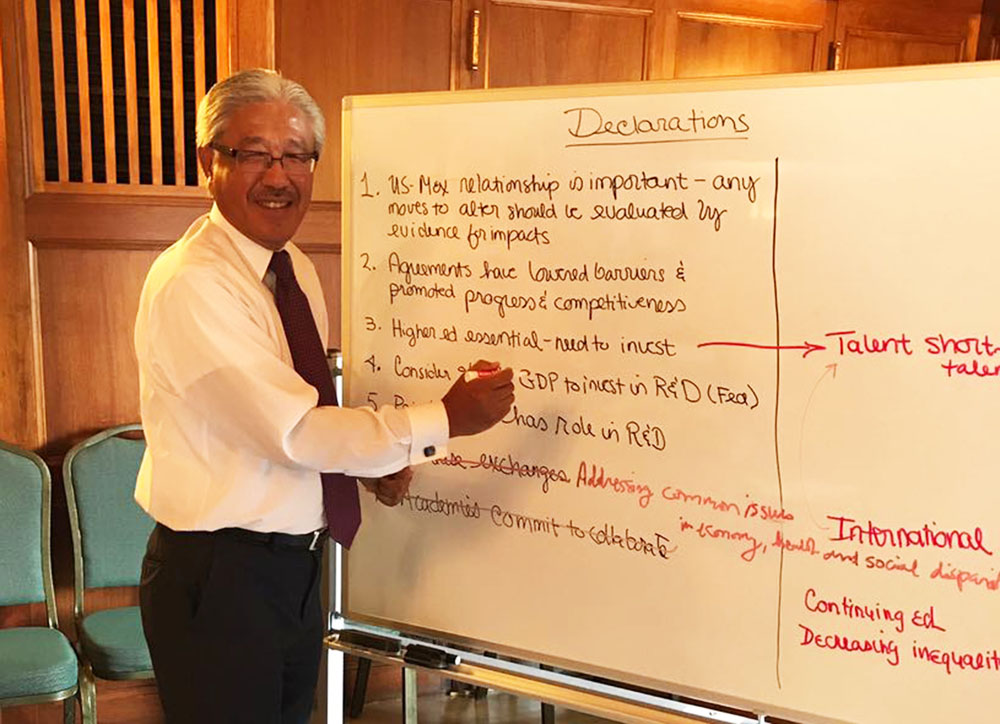 Declarations
1. US-Mex relationship is important - any
moves to alter should be evaluated by
evidence for impacts
2. Agreements have lowered barriers &
promoted progress & competitiveness
3. Higher ed essential - need to invest
4. Consider GDP to invest in R&D (Fed)
5. has role in R&D
exchanges Addressing common issues
in economy, health and social
Academies Commit to collaborate
Talent short-
talen
International
Continuing ed
Decreasing inequalit